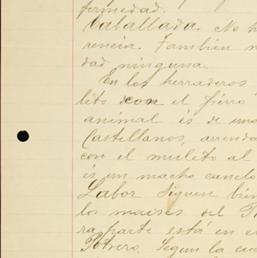 fermedad.
Caballada. No h
rencia. Tambien n
dad ninguna.
En los herraderos
lito con el fierro
animal es de una
Castellanos, arrenda
con el mulito al
és un macho canelo
Labor siguen bien
los maises del P
ra parte está en e
Potrero. Segun la cu